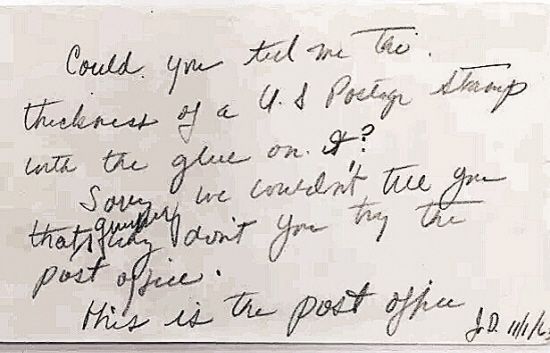 Could you tell me the
thickness of a U.S Postage Stamp
with the glue on it?
Sorry we couldn't tell you
that quickly why don't you try the
post office.
This is the post office J.D. 11/1/6